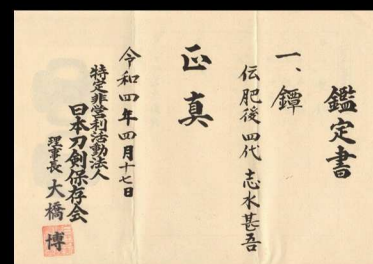 鑑定書
一、鐔
伝肥後四代 志水甚吾
正真
令和四年四月十七日
特定非営利活動法人
日本刀剣保存会
理事長 大橋 博